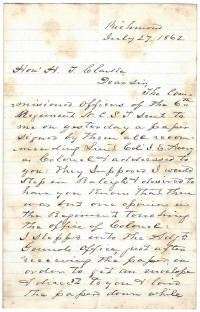 Richmond
July 27, 1862
Hon H. T. Clarke
Dear Sir
The Com-
missioned Officers of the 6th
Regiment N C S T sent to
me on yesterday a paper
signed by them all recom-
mending Lieut Col. I. E. Avery
as Colonel & addressed to
you. They supposed I would
step in Raleigh & desired to
have you know that there
was but one opinion in
the Regiment touching
the office of Colonel.
I stepped into the Adjt
Generals Office just after
receiving the paper, in
order to get an envelope
& direct to you & laid
the paper down while